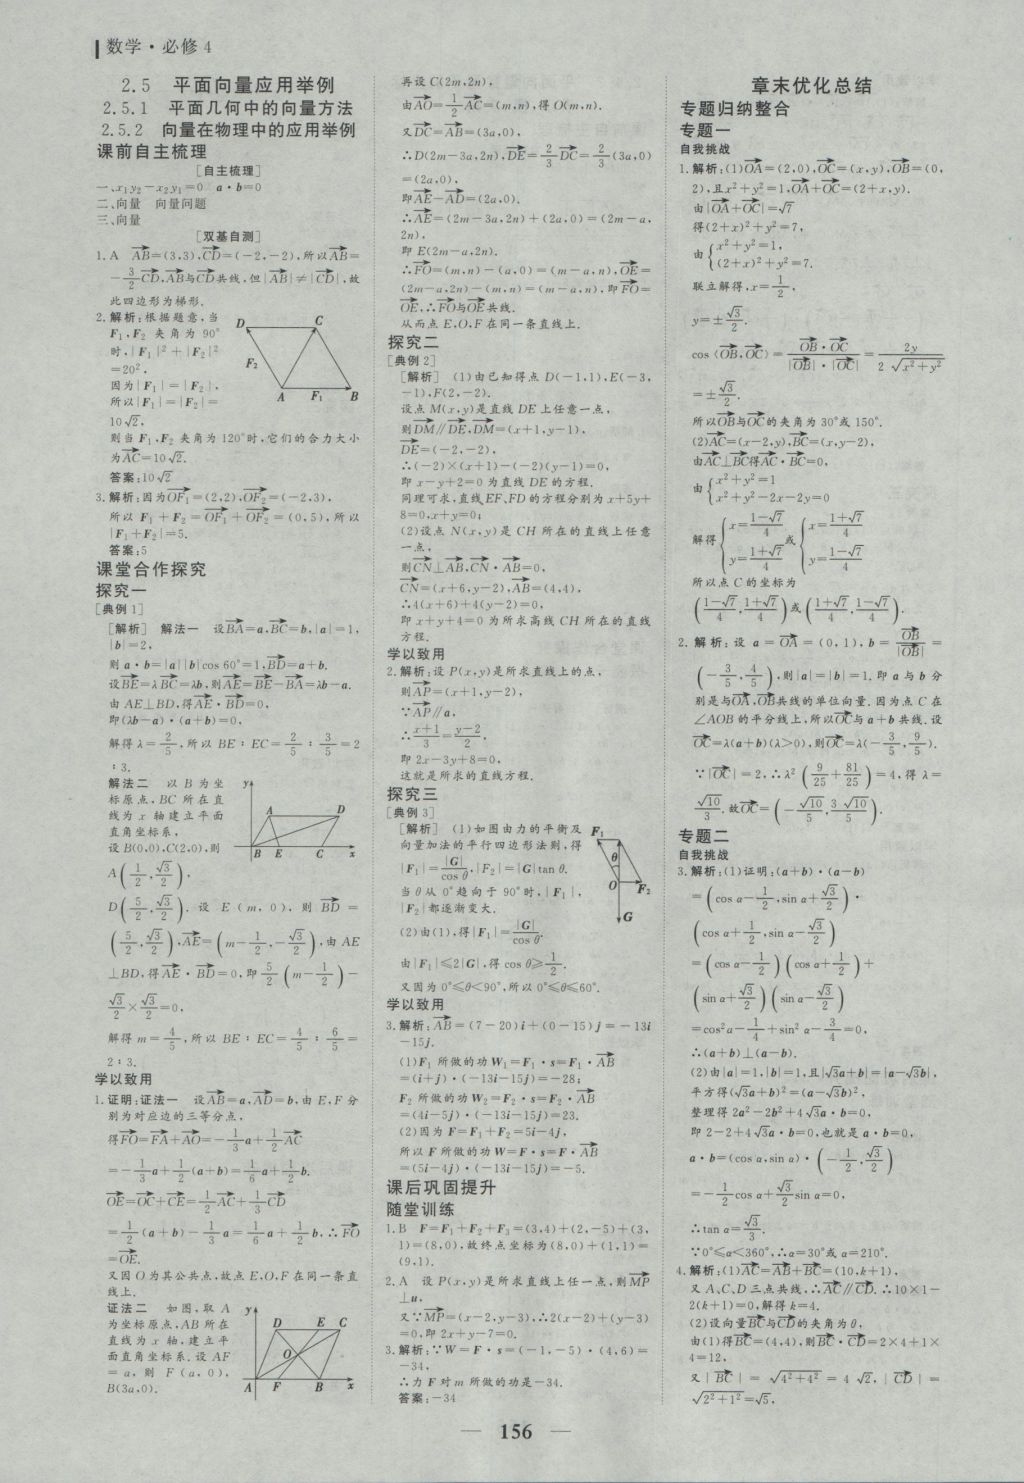 数学·必修4
2.5 平面向量应用举例
2.5.1 平面几何中的向量方法
2.5.2 向量在物理中的应用举例
课前自主梳理
[自主梳理]
一、x₁y₂-x₂y₁=0 a·b=0
二、向量 向量问题
三、向量
[双基自测]
1.A AB→=(3,3),CD→=(-2,-2),所以AB→=
-3/2 CD→,AB→与CD→共线,但|AB→|≠|CD→|,故
此四边形为梯形.
2.解析:根据题意,当
F₁,F₂ 夹角为 90°
时,|F₁|²+|F₂|²
=20².
因为|F₁|=|F₂|,
所以|F₁|=|F₂|=
10√2,
则当 F₁,F₂ 夹角为 120°时,它们的合力大小
为AC→=10√2.
答案:10√2
D C F₂ A F₁ B
3.解析:因为OF₁→=(2,2),OF₂→=(-2,3),
所以 F₁+F₂=OF₁→+OF₂→=(0,5),所以
|F₁+F₂|=5.
答案:5
课堂合作探究
探究一
[典例1]
[解析] 解法一 设BA→=a,BC→=b,|a|=1,
|b|=2,
则 a·b=|a||b|cos 60°=1,BD→=a+b.
设BE→=λBC→=λb,则AE→=BE→-BA→=λb-a.
由 AE⊥BD,得AE→·BD→=0,
即(λb-a)·(a+b)=0,
解得 λ=2/5,所以 BE∶EC=2/5∶3/5=2
∶3.
解法二 以 B 为坐
标原点,BC 所在直
线为 x 轴建立平面
直角坐标系,
设 B(0,0),C(2,0),则
y A D B E C x
A(1/2,√3/2).
D(5/2,√3/2). 设 E(m,0), 则 BD→=
(5/2,√3/2),AE→=(m-1/2,-√3/2),由 AE
⊥BD,得AE→·BD→=0,即5/2(m-1/2)-
√3/2×√3/2=0,
解得 m=4/5,所以 BE∶EC=4/5∶6/5=
2∶3.
学以致用
1.证明:证法一 设AB→=a,AD→=b,由 E,F 分
别为对应边的三等分点,
得FO→=FA→+AO→=-1/3a+1/2AC→
=-1/3a+1/2(a+b)=1/6a+1/2b.
OE→=OC→+CE→=1/2AC→+1/3CD→
=1/2(a+b)-1/3a=1/6a+1/2b,∴FO→
=OE→.
又因 O 为其公共点,故点 E,O,F 在同一条直
线上.
证法二 如图,取 A
为坐标原点,AB 所在
直线为 x 轴,建立平
面直角坐标系.设 AF
=a,则 F(a,0),
B(3a,0).
y D E C O A F B x
再设 C(2m,2n),
由AO→=1/2AC→=(m,n),得 O(m,n).
又DC→=AB→=(3a,0),
∴D(2m-3a,2n),DE→=2/3DC→=2/3(3a,0)
=(2a,0),
即AE→-AD→=(2a,0).
∴AE→=(2m-3a,2n)+(2a,0)=(2m-a,
2n),
即 E(2m-a,2n).
∴FO→=(m,n)-(a,0)=(m-a,n),OE→=
(2m-a,2n)-(m,n)=(m-a,n),即FO→=
OE→,∴FO→与OE→共线.
从而点 E,O,F 在同一条直线上.
探究二
[典例2]
[解析] (1)由已知得点 D(-1,1),E(-3,
-1),F(2,-2).
设点 M(x,y)是直线 DE 上任意一点,
则DM→∥DE→,DM→=(x+1,y-1),
DE→=(-2,-2),
∴(-2)×(x+1)-(-2)(y-1)=0,
即 x-y+2=0 为直线 DE 的方程.
同理可求,直线 EF、FD 的方程分别为 x+5y+
8=0,x+y=0;
(2)设点 N(x,y)是 CH 所在的直线上任意
一点,
则CN→⊥AB→,CN→·AB→=0,
CN→=(x+6,y-2),AB→=(4,4),
∴4(x+6)+4(y-2)=0,
即 x+y+4=0 为所求高线 CH 所在的直线
方程.
学以致用
2.解析:设 P(x,y)是所求直线上的点,
则AP→=(x+1,y-2),
∵AP→∥a,
∴(x+1)/3=(y-2)/2.
即 2x-3y+8=0,
这就是所求的直线方程.
探究三
[典例3]
[解析] (1)如图由力的平衡及
向量加法的平行四边形法则,得
|F₁|=|G|/cos θ,|F₂|=|G|tan θ.
当 θ 从 0°趋向于 90°时,|F₁|,
|F₂|都逐渐变大.
(2)由(1),得|F₁|=|G|/cos θ.
F₁ θ O F₂ G
由|F₁|≤2|G|,得 cos θ≥1/2.
又因为 0°≤θ<90°,所以 0°≤θ≤60°.
学以致用
3.解析:AB→=(7-20)i+(0-15)j=-13i
-15j.
(1)F₁ 所做的功 W₁=F₁·s=F₁·AB→
=(i+j)·(-13i-15j)=-28;
F₂ 所做的功 W₂=F₂·s=F₂·AB→
=(4i-5j)·(-13i-15j)=23.
(2)因为 F=F₁+F₂=5i-4j,
所以 F 所做的功 W=F·s=F·AB→
=(5i-4j)·(-13i-15j)=-5.
课后巩固提升
随堂训练
1.B F=F₁+F₂+F₃=(3,4)+(2,-5)+(3,
1)=(8,0),故终点坐标为(8,0)+(1,1)=
(9,1).
2.A 设 P(x,y)是所求直线上任一点,则MP→
⊥u,
又∵MP→=(x-2,y-3),∴2(x-2)+(y-3)
=0,即 2x+y-7=0.
3.解析:∵W=F·s=(-1,-5)·(4,6)=
-34,
∴力 F 对 m 所做的功是-34.
答案:-34
章末优化总结
专题归纳整合
专题一
自我挑战
1.解析:(1)OA→=(2,0),OC→=(x,y),OB→=(0,
2),且x²+y²=1,OA→+OC→=(2+x,y).
由|OA→+OC→|=√7
得(2+x)²+y²=7,
由{x²+y²=1,
(2+x)²+y²=7.
联立解得,x=1/2,
y=±√3/2.
cos⟨OB→,OC→⟩=OB→·OC→/(|OB→|·|OC→|)=2y/(2√(x²+y²))
=±√3/2.
所以OB→与OC→的夹角为 30°或 150°.
(2)AC→=(x-2,y),BC→=(x,y-2),
由AC→⊥BC→得AC→·BC→=0,
由{x²+y²=1
x²+y²-2x-2y=0
解得{x=(1-√7)/4 y=(1+√7)/4 或{x=(1+√7)/4 y=(1-√7)/4
所以点 C 的坐标为
((1-√7)/4,(1+√7)/4)或((1+√7)/4,(1-√7)/4).
2.解析:设 a=OA→=(0,1),b=OB→/|OB→|=
(-3/5,4/5),则|a|=|b|=1.即 a 与 b 分
别是与OA→,OB→共线的单位向量.因为点 C 在
∠AOB 的平分线上,所以OC→与 a+b 共线.设
OC→=λ(a+b)(λ>0),则OC→=λ(-3/5,9/5).
∵|OC→|=2,∴λ²(9/25+81/25)=4,得 λ=
√10/3.故OC→=(-√10/5,3√10/5).
专题二
自我挑战
3.解析:(1)证明:(a+b)·(a-b)
=(cos α-1/2,sin α+√3/2)·
(cos α+1/2,sin α-√3/2)
=(cos α-1/2)(cos α+1/2)+
(sin α+√3/2)(sin α-√3/2)
=cos²α-1/4+sin²α-3/4=0,
∴(a+b)⊥(a-b).
(2)由|a|=1,|b|=1,且|√3a+b|=|a-√3b|,
平方得(√3a+b)²=(a-√3b)²,
整理得 2a²-2b²+4√3a·b=0,
即 2-2+4√3a·b=0,也就是 a·b=0,
a·b=(cos α,sin α)·(-1/2,√3/2)
=-1/2cos α+√3/2sin α=0,
∴tan α=√3/3.
∵0°≤α<360°,∴α=30°或 α=210°.
4.解析:(1)AC→=AB→+BC→=(10,k+1),
又 A、C、D 三点共线,∴AC→∥CD→.∴10×1-
2(k+1)=0,解得 k=4.
(2)设向量BC→与CD→的夹角为 θ,
由(1)得BC→=(4,4),则BC→·CD→=2×4+1×
4=12,
又|BC→|=√(4²+4²)=4√2,|CD→|=
√(2²+1²)=√5,
— 156 —